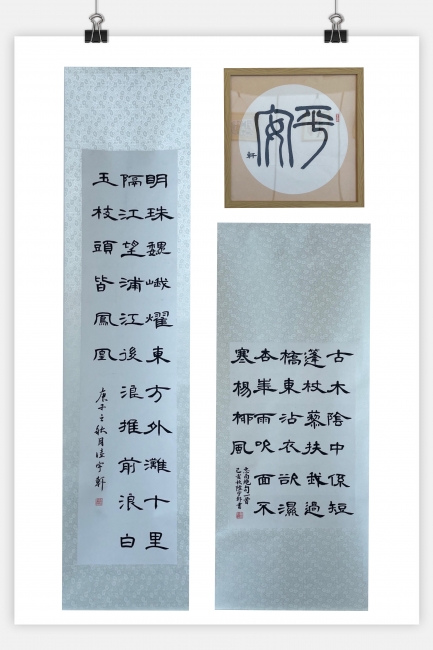 明珠巍峨耀東方外灘十里
隔江望浦江後浪推前浪白
玉枝頭皆鳳凰
庚子之秋月陸宇軒
平安
軒
古木陰中係短
蓬杖藜扶我過
橋東沾衣欲濕
杏華雨吹面不
寒楊柳風
志南絶句一首
己亥秋陸宇軒書